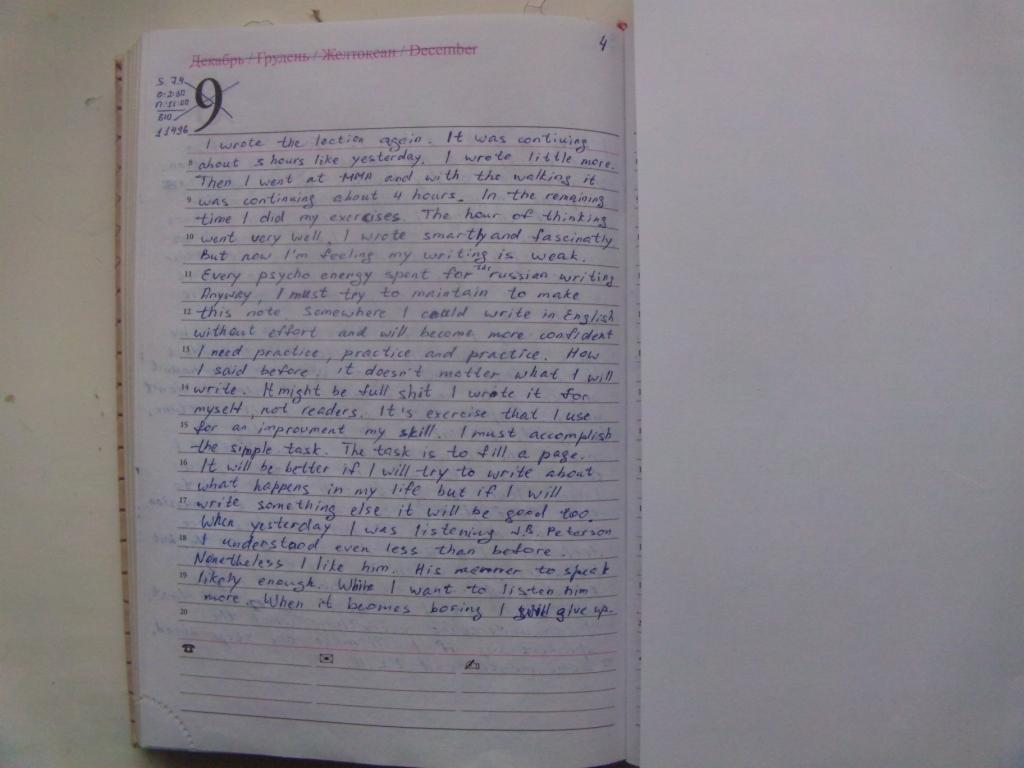 4
Декабрь / Грудень / Желтоксан / December
S. 7.4
0:2:30
П:11:00
510
11496
9
I wrote the lection again. It was contiuing
8 about 5 hours like yesterday. I wrote little more.
Then I went at MMA and with the walking it
9 was continuing about 4 hours. In the remaining
time I did my exercises. The hour of thinking
10 went very well. I wrote smartly and fascinatly
But now I'm feeling my writing is weak.
11 Every psycho energy spent for the russian writing
Anyway, I must try to maintain to make
12 this note somewhere I could write in English
without effort and will become more confident
13 I need practice, practice and practice. How
I said before, it doesn't matter what I will
14 write. It might be full shit I wrote it for
myself, not readers. It's exercise that I use
15 for an improvment my skill. I must accomplish
the simple task. The task is to fill a page.
16 It will be better if I will try to write about
what happens in my life but if I will
17 write something else it will be good too.
When yesterday I was listening J.B. Peterson
18 I understood even less than before.
Nonetheless I like him. His manner to speak
19 likely enough. While I want to listen him
more. When it becomes boring I will give up.
20